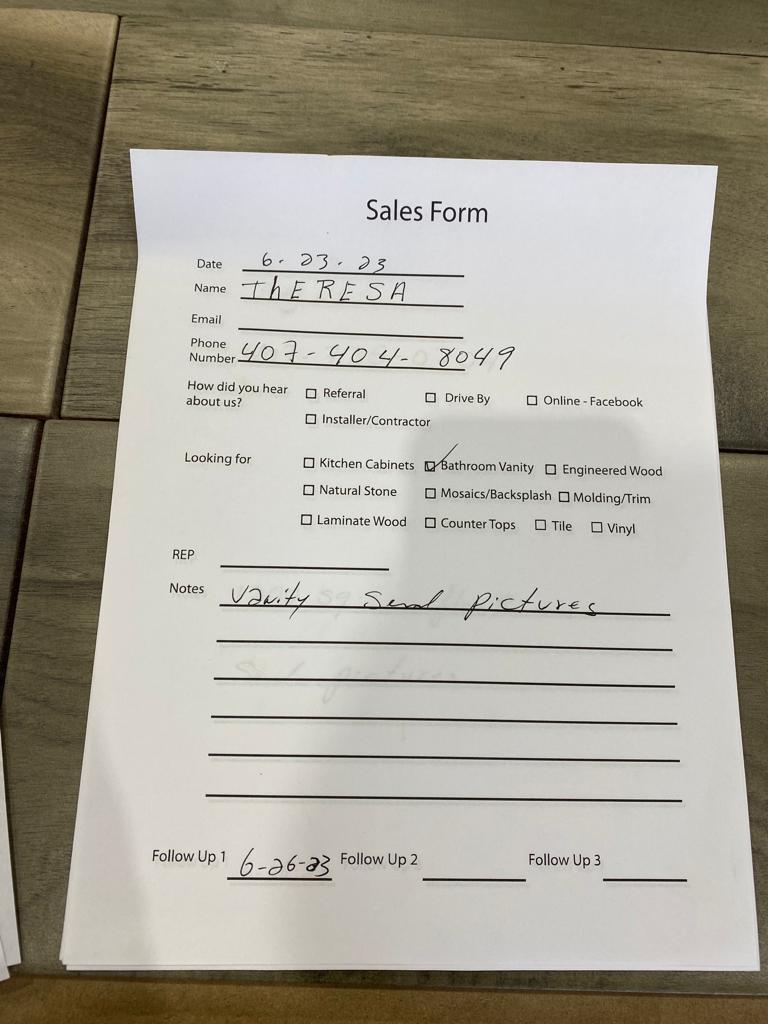 Sales Form
Date 6. 23. 23
Name ThERESA
Email
Phone Number 407-404-8049
How did you hear about us? ☐ Referral ☐ Drive By ☐ Online - Facebook
☐ Installer/Contractor
Looking for ☐ Kitchen Cabinets ☑ Bathroom Vanity ☐ Engineered Wood
☐ Natural Stone ☐ Mosaics/Backsplash ☐ Molding/Trim
☐ Laminate Wood ☐ Counter Tops ☐ Tile ☐ Vinyl
REP
Notes Vanity Send pictures
Follow Up 1 6-26-23 Follow Up 2 Follow Up 3